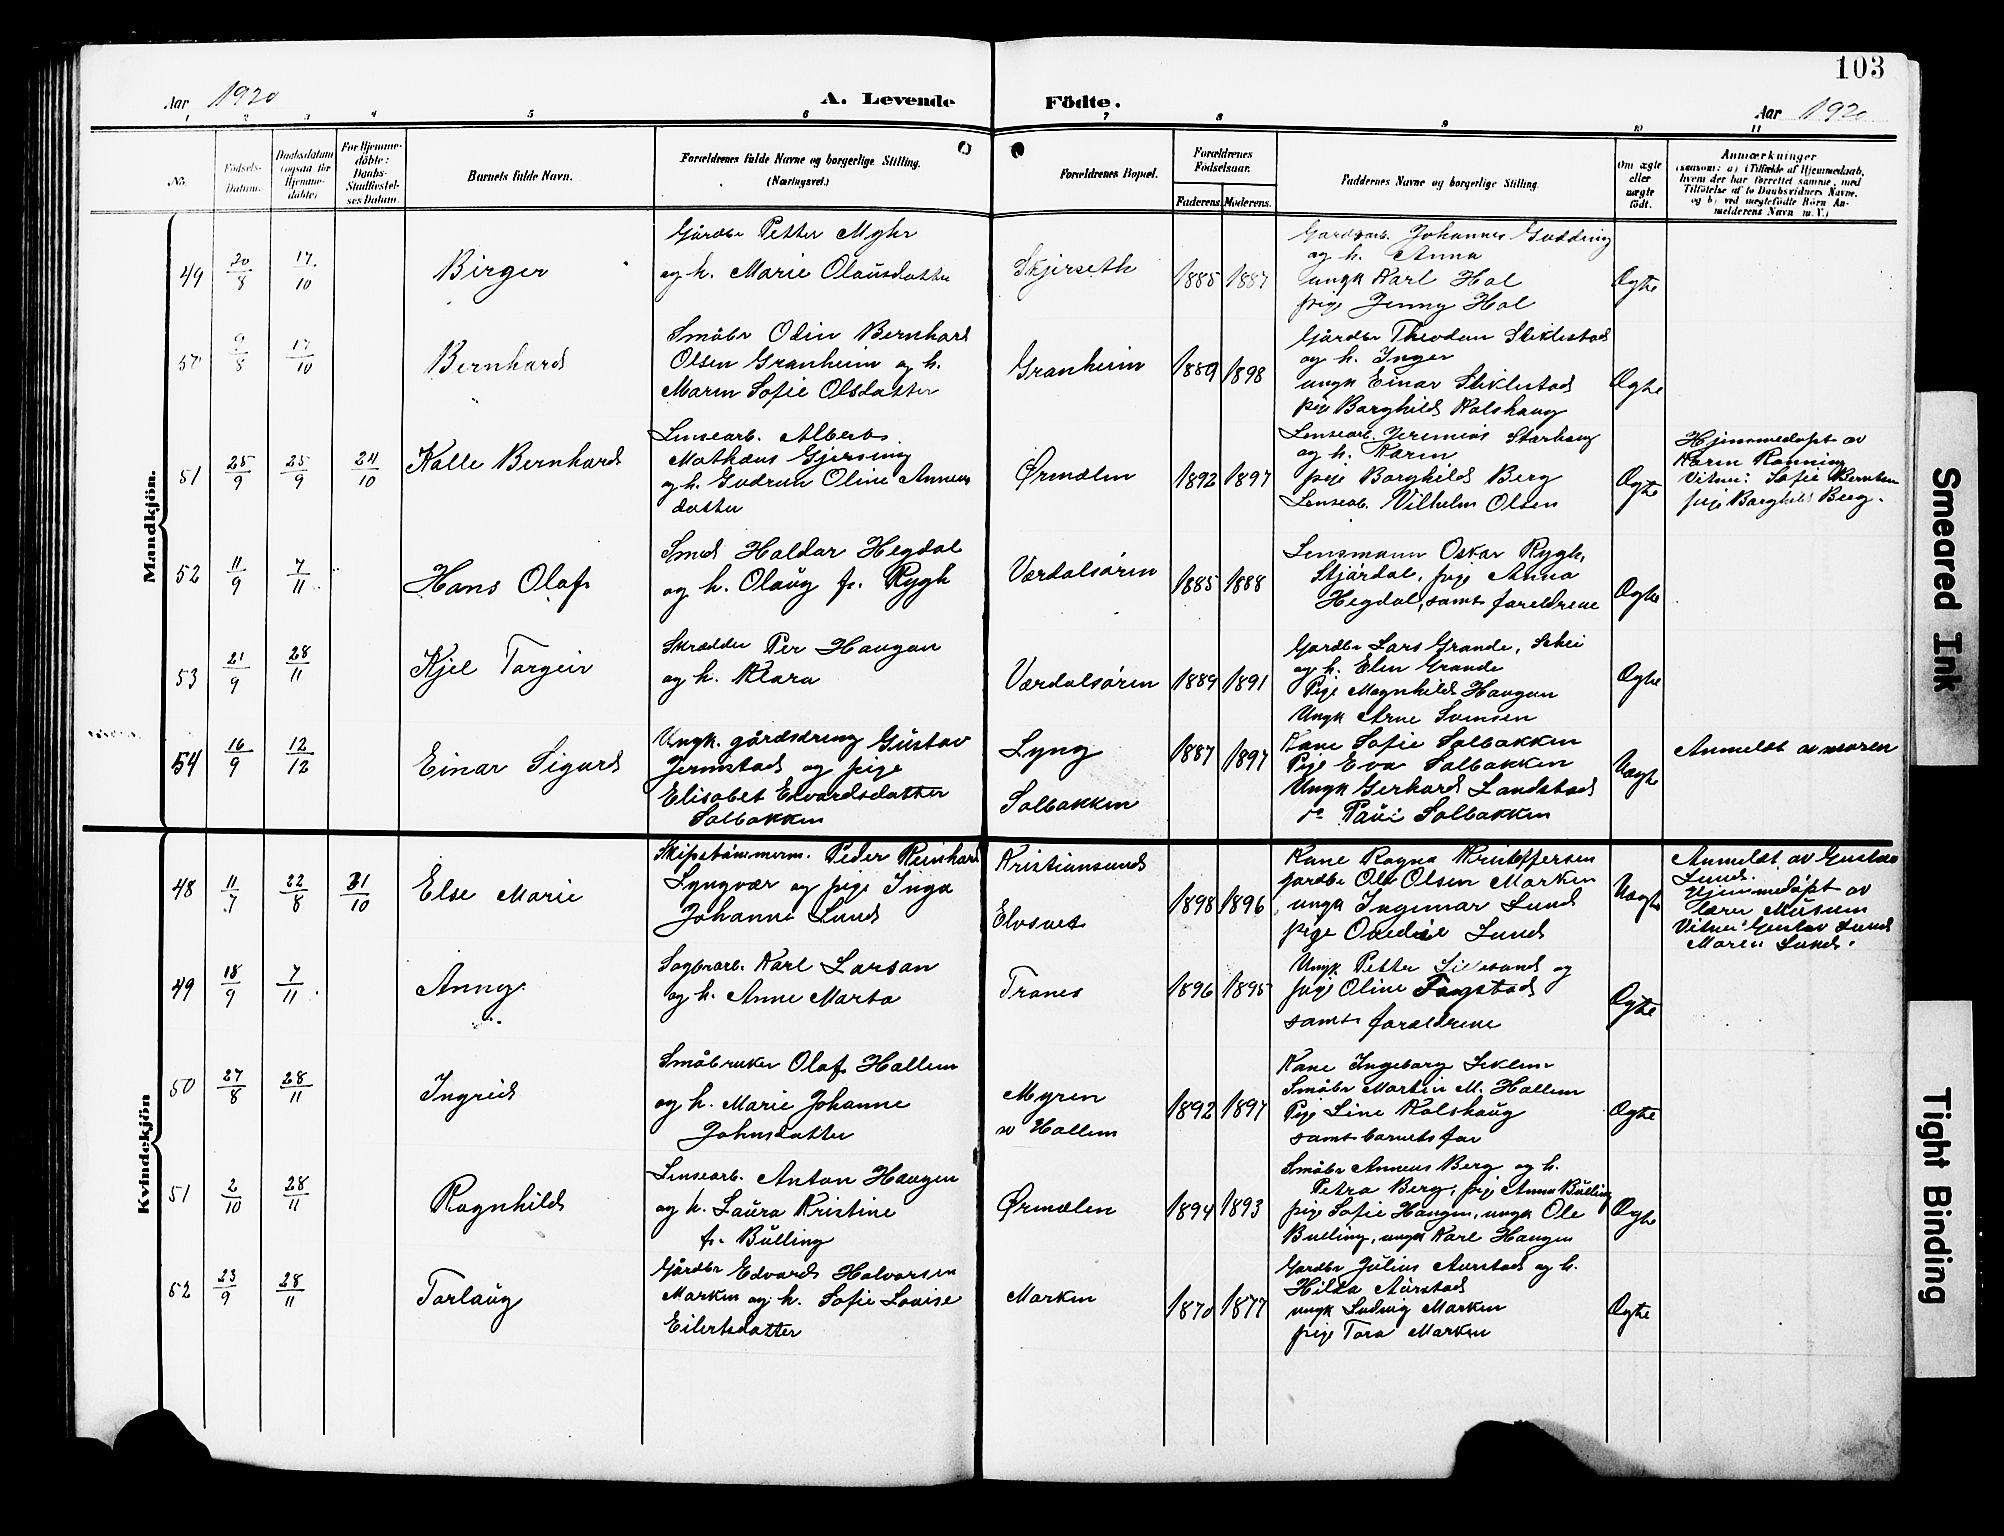 103
Aar 1920
A. Levende Födte.
Aar 192
1 2 3 4 5 6 7 8 9 10 11
No.
Födsels-Datum.
Daabsdatum (ogsaa for Hjemmedöbte)
For Hjemmedöbte: Daabs-Stadfæstelses Datum.
Barnets fulde Navn.
Forældrenes fulde Navne og borgerlige Stilling. (Næringsvei.)
Forældrenes Bopæl.
Forældrenes Födselsaar.
Faderens. Moderens.
Faddernes Navne og borgerlige Stilling.
Om ægte eller uægte födt.
Anmærkninger
(saasom: a) i Tilfælde af Hjemmedaab, hvem der har forrettet samme, med Tilföielse af to Daabsvidners Navne, og b) ved uægtefödte Börn Anmelderens Navn m. V.)
Mandkjön.
49 20/8 17/10 Birger
Gårdbr Petter Myhr
og h. Marie Olausdatter
Skjerseth 1885 1887
Gardsarb. Johannes Gudding
og h. Anna
ungk Karl Hol
pige Jenny Hol
Ægte
50 9/8 17/10 Bernhard
Småbr Odin Bernhard
Olsen Granheim og h.
Maren Sofie Olsdatter
Granheim 1889 1898
Gårdbr Theodan Stiklestad
og h. Inger
ungk Einar Stiklestad
pige Borghild Kolshaug
Ægte
51 25/9 25/9 24/10 Kalle Bernhard
Lensearb. Albert
Mathæus Gjersing
og h. Gudrun Oline Anneus
datter
Ørmælen 1892 1897
Lensearb. Jeremias Storhaug
og h. Karen
pige Borghild Berg
Lensearb. Vilhelm Olsen
Ægte
Hjemmedøpt av
Karen Rønning
Vitner: Sofie
pige Borghild Berg.
52 11/9 7/11 Hans Olaf
Smed Haldor Hegdal
og h. Olaug f. Rygh
Værdalsøren 1885 1888
Lensmann Oskar Rygh,
Stjørdal, pige Anna
Hegdal, samt foreldrene
Ægte
53 21/9 28/11 Kjel Torgeir
Skrædder Per Haugan
og h. Klara
Værdalsøren 1889 1891
Gardbr Lars Grande, Skei
og h. Elen Grande
Pige Magnhild Haugan
Ungk Arne Svensen
Ægte
54 16/9 12/12 Einar Sigurd
Ungk. gårdsdreng Gustav
Jermstad og pige
Elisabet Edvardsdatter
Solbakken
Lyng
Solbakken 1887 1897
Kone Sofie Solbakken
Pige Eva Solbakken
Ungk Gerhard Landstad
do Paul Solbakken
Uægte
Anmeldt av moren
Kvindekjön
48 11/7 22/8 31/10 Else Marie
Skipstømmerm. Peder Reinhard
Lyngvær og pige Inga
Johanne Lund
Kristiansund
Elvsvet 1898 1896
Kone Ragna Kristoffersen
gardbr Ole Olsen Marken
ungk Ingemar Lund
pige Ovedie Lund
Uægte
Anmeldt av Gustav
Lund.
Hjemmedøpt av
lærer Musum
Vitner Gustav Lund
Maren Lund.
49 18/9 7/11 Anny
Sagbrarb. Karl Larsen
og h. Anne Marta
Tranes 1896 1895
Ungk Petter og
pige Oline Fagstad
samt foreldrene
Ægte
50 27/8 28/11 Ingrid
Småbruker Olaf Hallem
og h. Marie Johanne
Johnsdatter
Myren
v Hallem 1892 1897
Kone Ingeborg Leklem
Småbr Martin M. Hallem
Pige Line Kolshaug
samt barnets far
Ægte
51 2/10 28/11 Ragnhild
Lensearb. Anton Haugen
og h. Laura Kristine
f. Bulling
Ørmælen 1894 1893
Småbr Anneus Berg og h.
Petra Berg, pige Anna Bulling
pige Sofie Haugen, ungk Ole
Bulling, ungk Karl Haugen
Ægte
52 23/9 28/11 Torlaug
Gårdbr Edvard Halvorsen
Marken og h. Sofie Lovise
Eilertsdatter
Marken 1870 1877
Gardbr Julius Aurstad og h.
Hilda Aurstad
ungk Ludvig Marken
pige Tora Marken
Ægte
Smeared Ink
Tight Binding